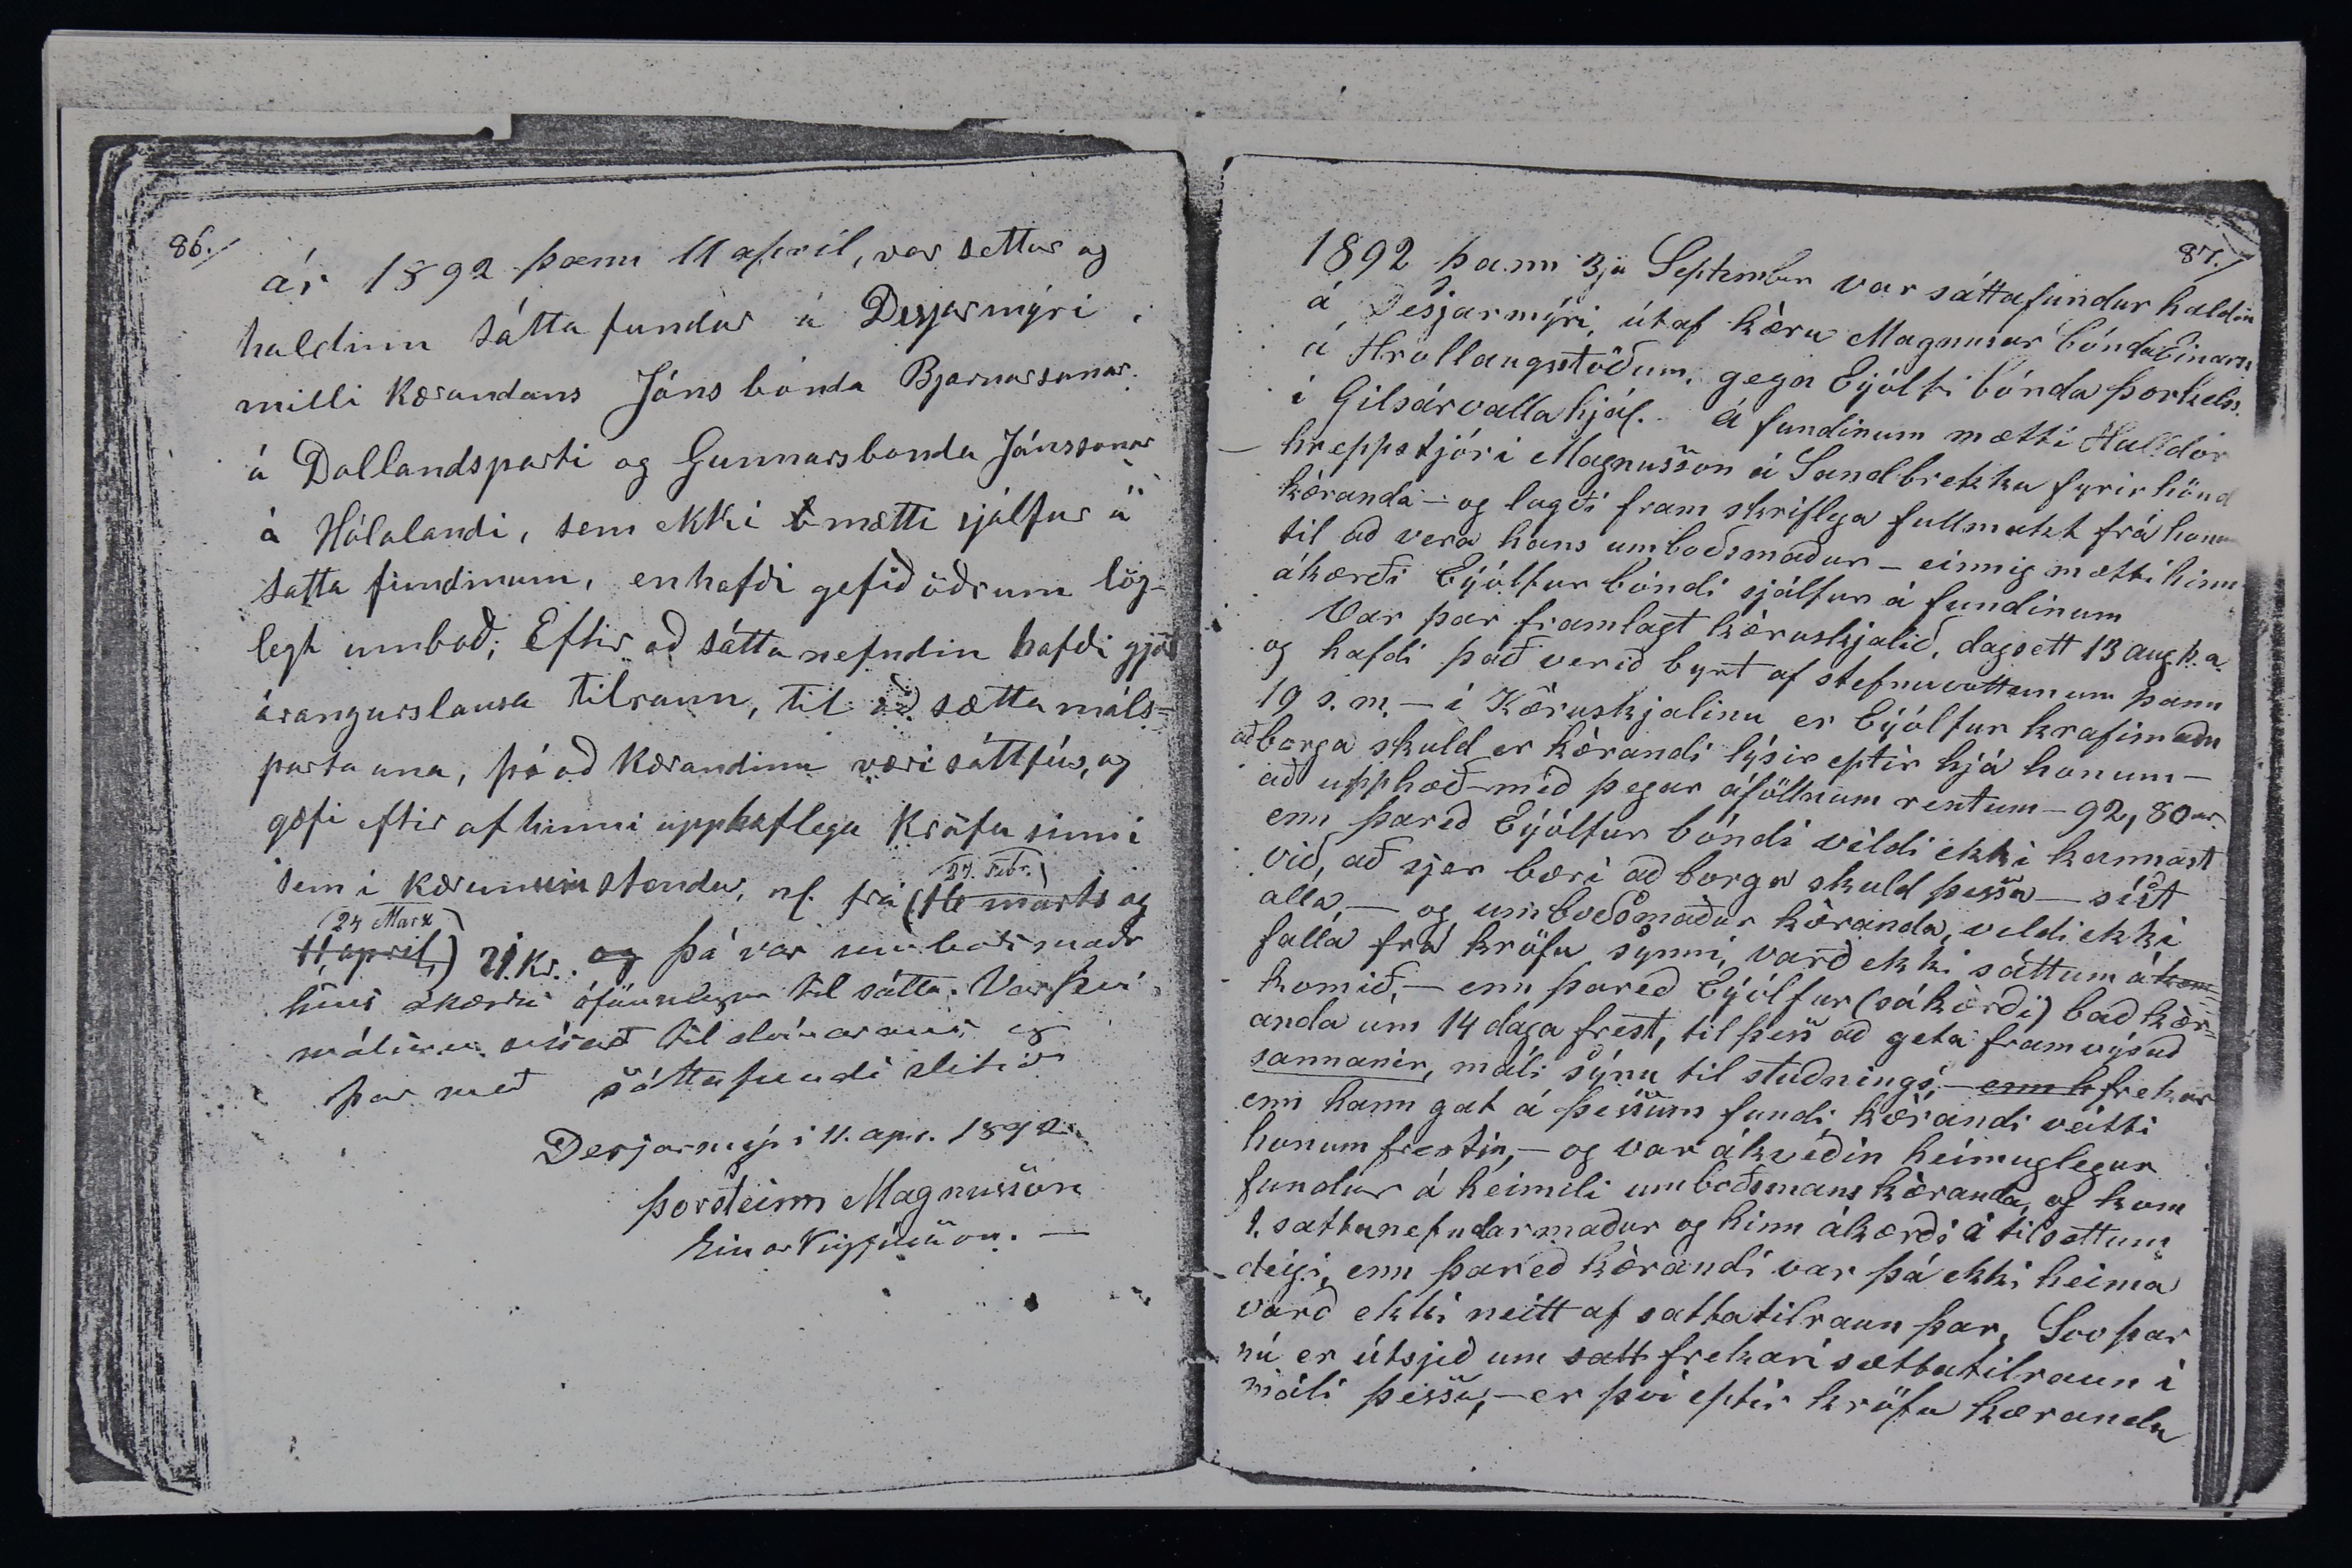 86./
ár 1892 þann 11 apríl, var settur og
haldinn sátta fundur á Desjarmýri,
milli kærandans Jóns bónda Bjarnarsonar
á Dallandsparti og Gunnars bonda Jónssonar
á Hólalandi, sem ekki mætti sjálfur á
satta fundinum, en hafði gefið öðrum lög-
legt umboð; Eftir að sátta nefndin hafði gjört
árangurslausa tilraun, til að sætta máls-
parta una, þó að kærandinn væri sáttfús, og
gæfi eftir af hinni upphaflega kröfu sinni
27. Febr.
sem í kærunum stendur, nf. frá (16 marts og
24 Marx
11 april,) 21. Kr. og þá var umboðsmaðr
hins ákærða ófáanlegur til sátta. Var því
málinu vísað til dómarans og
þar með sáttafundi slitið
Desjarmýri 11. apr. 1892.
Þorsteinn Magnússon
Einar Vigfússon. —
87./
1892 þann 3ja September var sáttafundur haldin
á Desjarmýri, útaf kæru Magnusar bónda Einarss
á Hrollaugsstöðum, gegn Eýólfi bónda Þorkelss.
í Gilsárvallahjál. Á fundinum mætti Halldór
hreppstjóri Magnusson á Sandbrekku fyrir hönd
kæranda — og lagði fram skriflega fullmakt frá honum
til að vera hans umboðsmaður — einnig mætti hinn
ákærði Eýólfur bóndi sjálfur á fundinum
Var þar framlagt kæruskjalið, dagsett 13 aug. þ. a.
og hafdi það verið byrt af stefnuvottunum þann
19 s. m. — í Kæruskjalinu er Eýólfur krafinn um
að borga skuld er kærandi lýsir eptir hjá honum —
að upphæð — með þegar áföllnum rentum — 92, 80 ar.
enn þareð Eýólfur bóndi vildi ekki kannast
við, að sjer bæri að borga skuld þessa — síst
alla, — og umboðsmaður kæranda, veldi ekki
falla frá kröfu sýnni, varð ekki sáttum á kom-
komið, — enn þareð Eýólfur (sákærði) bað kær-
anda um 14 daga frest, til þess að geta framvýsað
sannanir, máli sýnu til stuðnings, — enn h frekar
enn hann gat á þessum fundi, kærandi veitti
honum frestin, — og var ákveðin heimuglegur
fundur á heimili umboðsmans kæranda, og kom
1. sattanefndarmaður og hinn ákærði á tilsettum
degi, enn þareð kærandi var þá ekki heima
varð ekki neitt af sattatilraun þar, Svo þar
nú er útsjeð um satt frekari sættatilraun í
máli þessu, — er því eptir kröfu kæranda